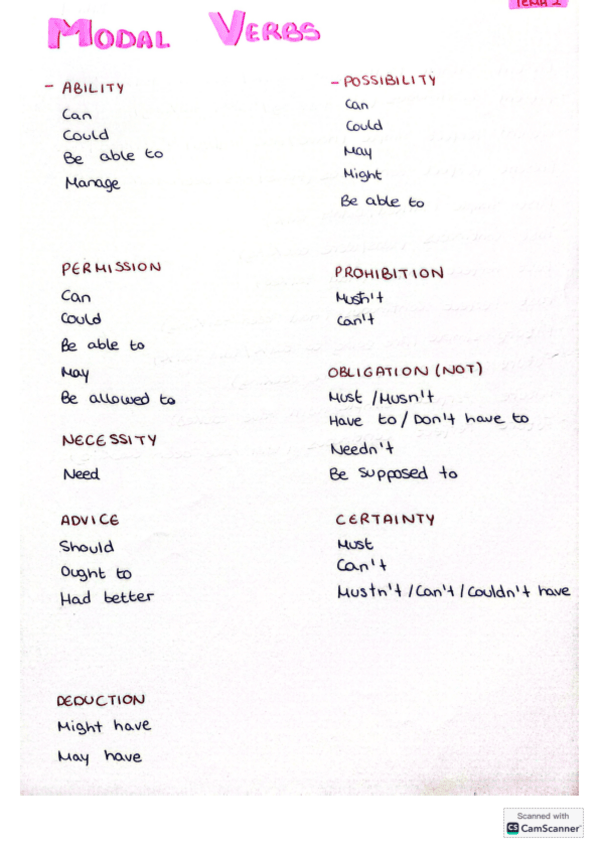 TEMA 1
MODAL VERBS
- ABILITY
Can
Could
Be able to
Manage
- POSSIBILITY
Can
Could
May
Might
Be able to
PERMISSION
Can
Could
Be able to
May
Be allowed to
PROHIBITION
Mustn't
Can't
OBLIGATION (NOT)
Must / Musn't
Have to / Don't have to
Needn't
Be supposed to
NECESSITY
Need
ADVICE
Should
Ought to
Had better
CERTAINTY
Must
Can't
Mustn't / Can't / Couldn't have
DEDUCTION
Might have
May have
Scanned with
CS CamScanner